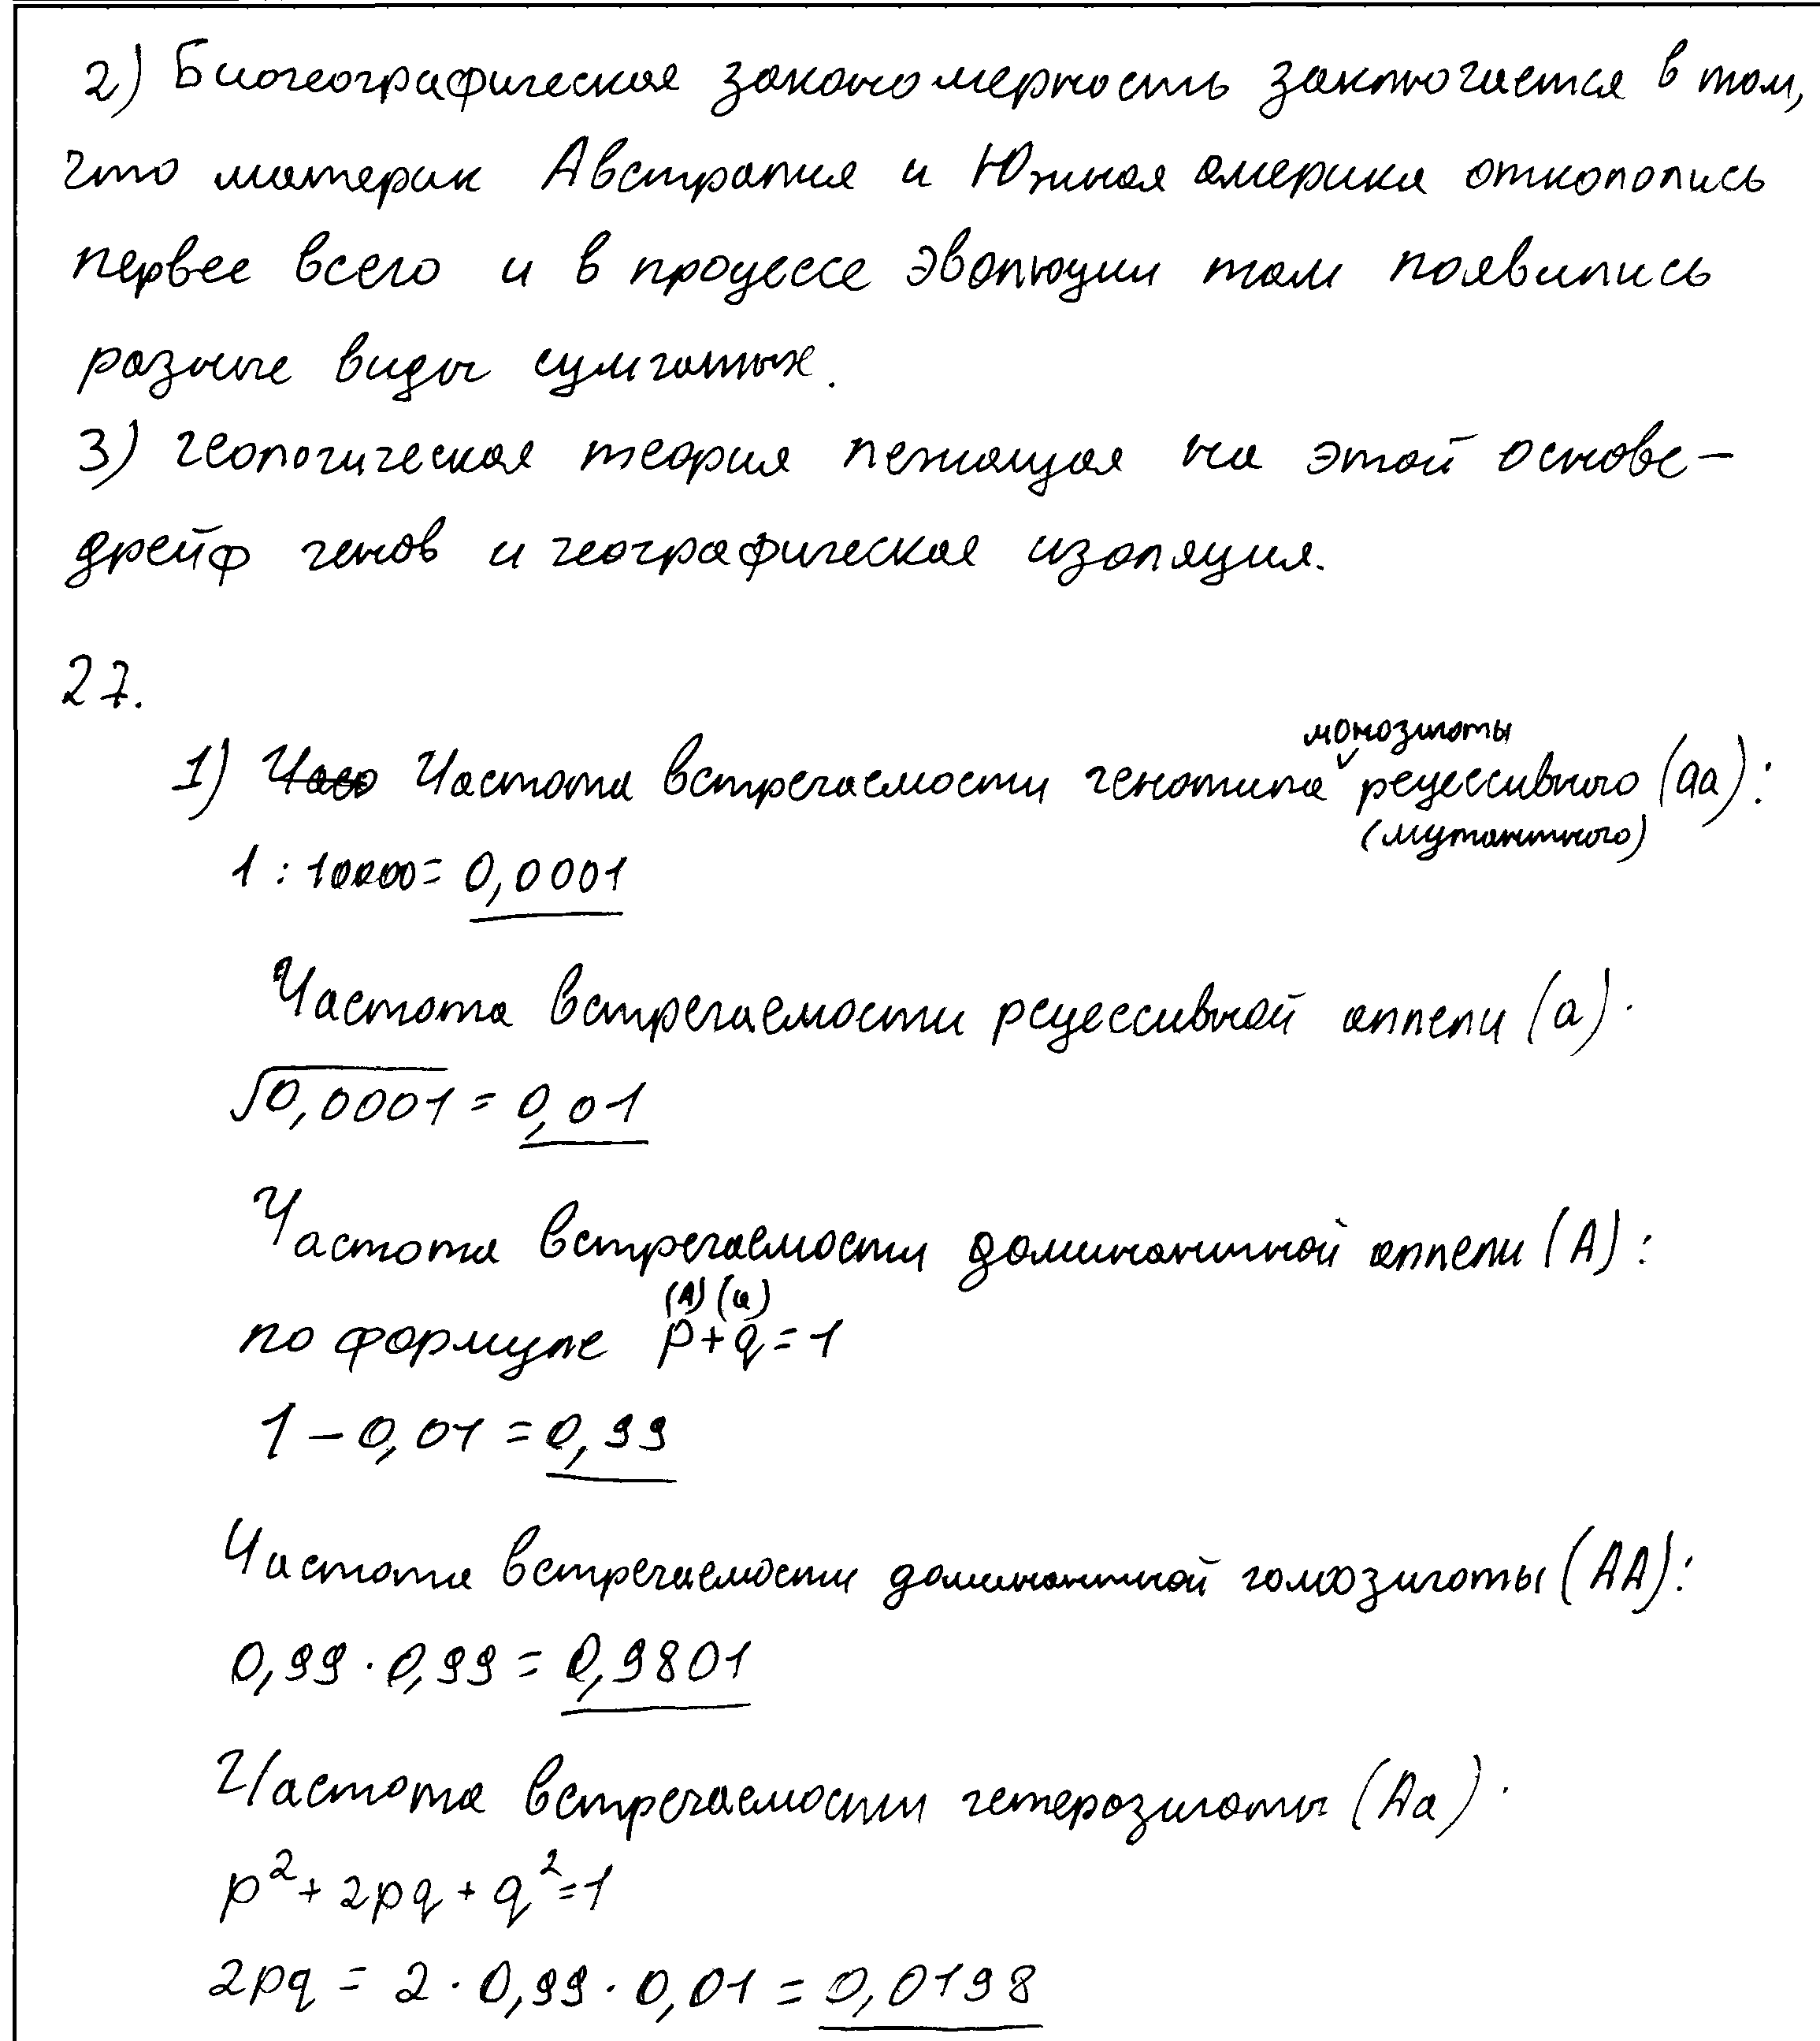 2) Биогеографическая закономерность заключается в том,
что материк Австралия и Южная америка откололись
первее всего и в процессе эволюции там появились
разные виды сумчатых.
3) геологическая теория лежащая на этой основе -
дрейф генов и географическая изоляция.
27.
монозиготы
1) Часо Частота встречаемости генотипа ˅ рецессивного (аа):
(мутантного)
1 : 10000 = 0,0001
Частота встречаемости рецессивной аллели (а).
√0,0001 = 0,01
Частота встречаемости доминантной аллели (А):
(А) (а)
по формуле p+q=1
1 - 0,01 = 0,99
Частота встречаемости доминантной гомозиготы (АА):
0,99 · 0,99 = 0,9801
Частота встречаемости гетерозиготы (Аа).
p² + 2pq + q² = 1
2pq = 2 · 0,99 · 0,01 = 0,0198